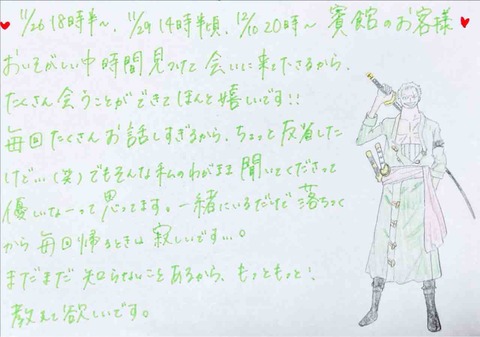 ♥11/26 18時半〜、11/29 14時半頃、12/10 20時〜 賓館のお客様♥
おいそがしい中時間見つけて会いに来てくださるから、
たくさん会うことができてほんと嬉しいです!!
毎回たくさんお話しすぎるから、ちょっと反省した
けど…(笑)でもそんな私のわがまま聞いてくださって
優しいなーって思ってます。一緒にいるだけで落ちつく
から毎回帰るときは寂しいです…。
まだまだ知らないことあるから、もっともっと!
教えて欲しいです。